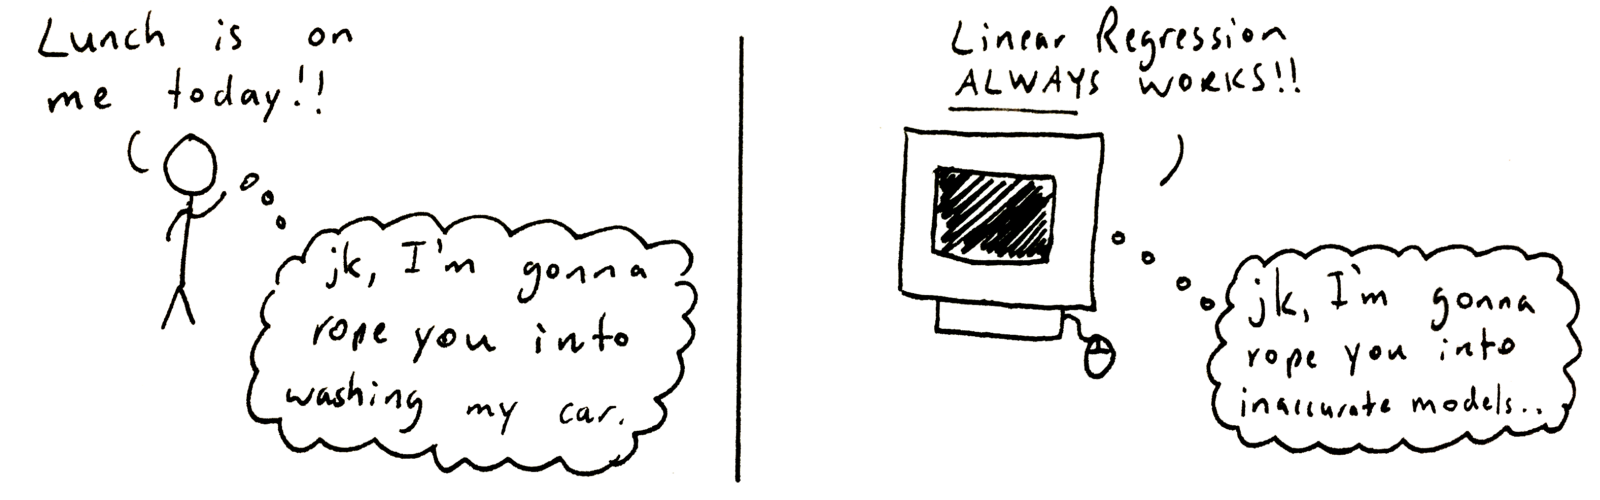 Lunch is on
me today!!
jk, I'm gonna
rope you into
washing my car.
Linear Regression
ALWAYS WORKS!!
jk, I'm gonna
rope you into
inaccurate models..